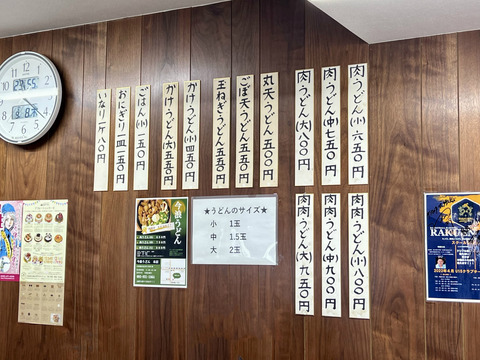 肉うどん(小)六五〇円
肉うどん(中)七五〇円
肉うどん(大)八〇〇円
丸天うどん五〇〇円
ごぼ天うどん五五〇円
玉ねぎうどん五五〇円
かけうどん(小)四五〇円
かけうどん(大)五五〇円
ごはん(小)一五〇円
おにぎり一皿一五〇円
いなり一ケ八〇円
肉肉うどん(小)八〇〇円
肉肉うどん(中)九〇〇円
肉肉うどん(大)九五〇円
★うどんのサイズ★
小 1玉
中 1.5玉
大 2玉
今浪うどん
KAKU